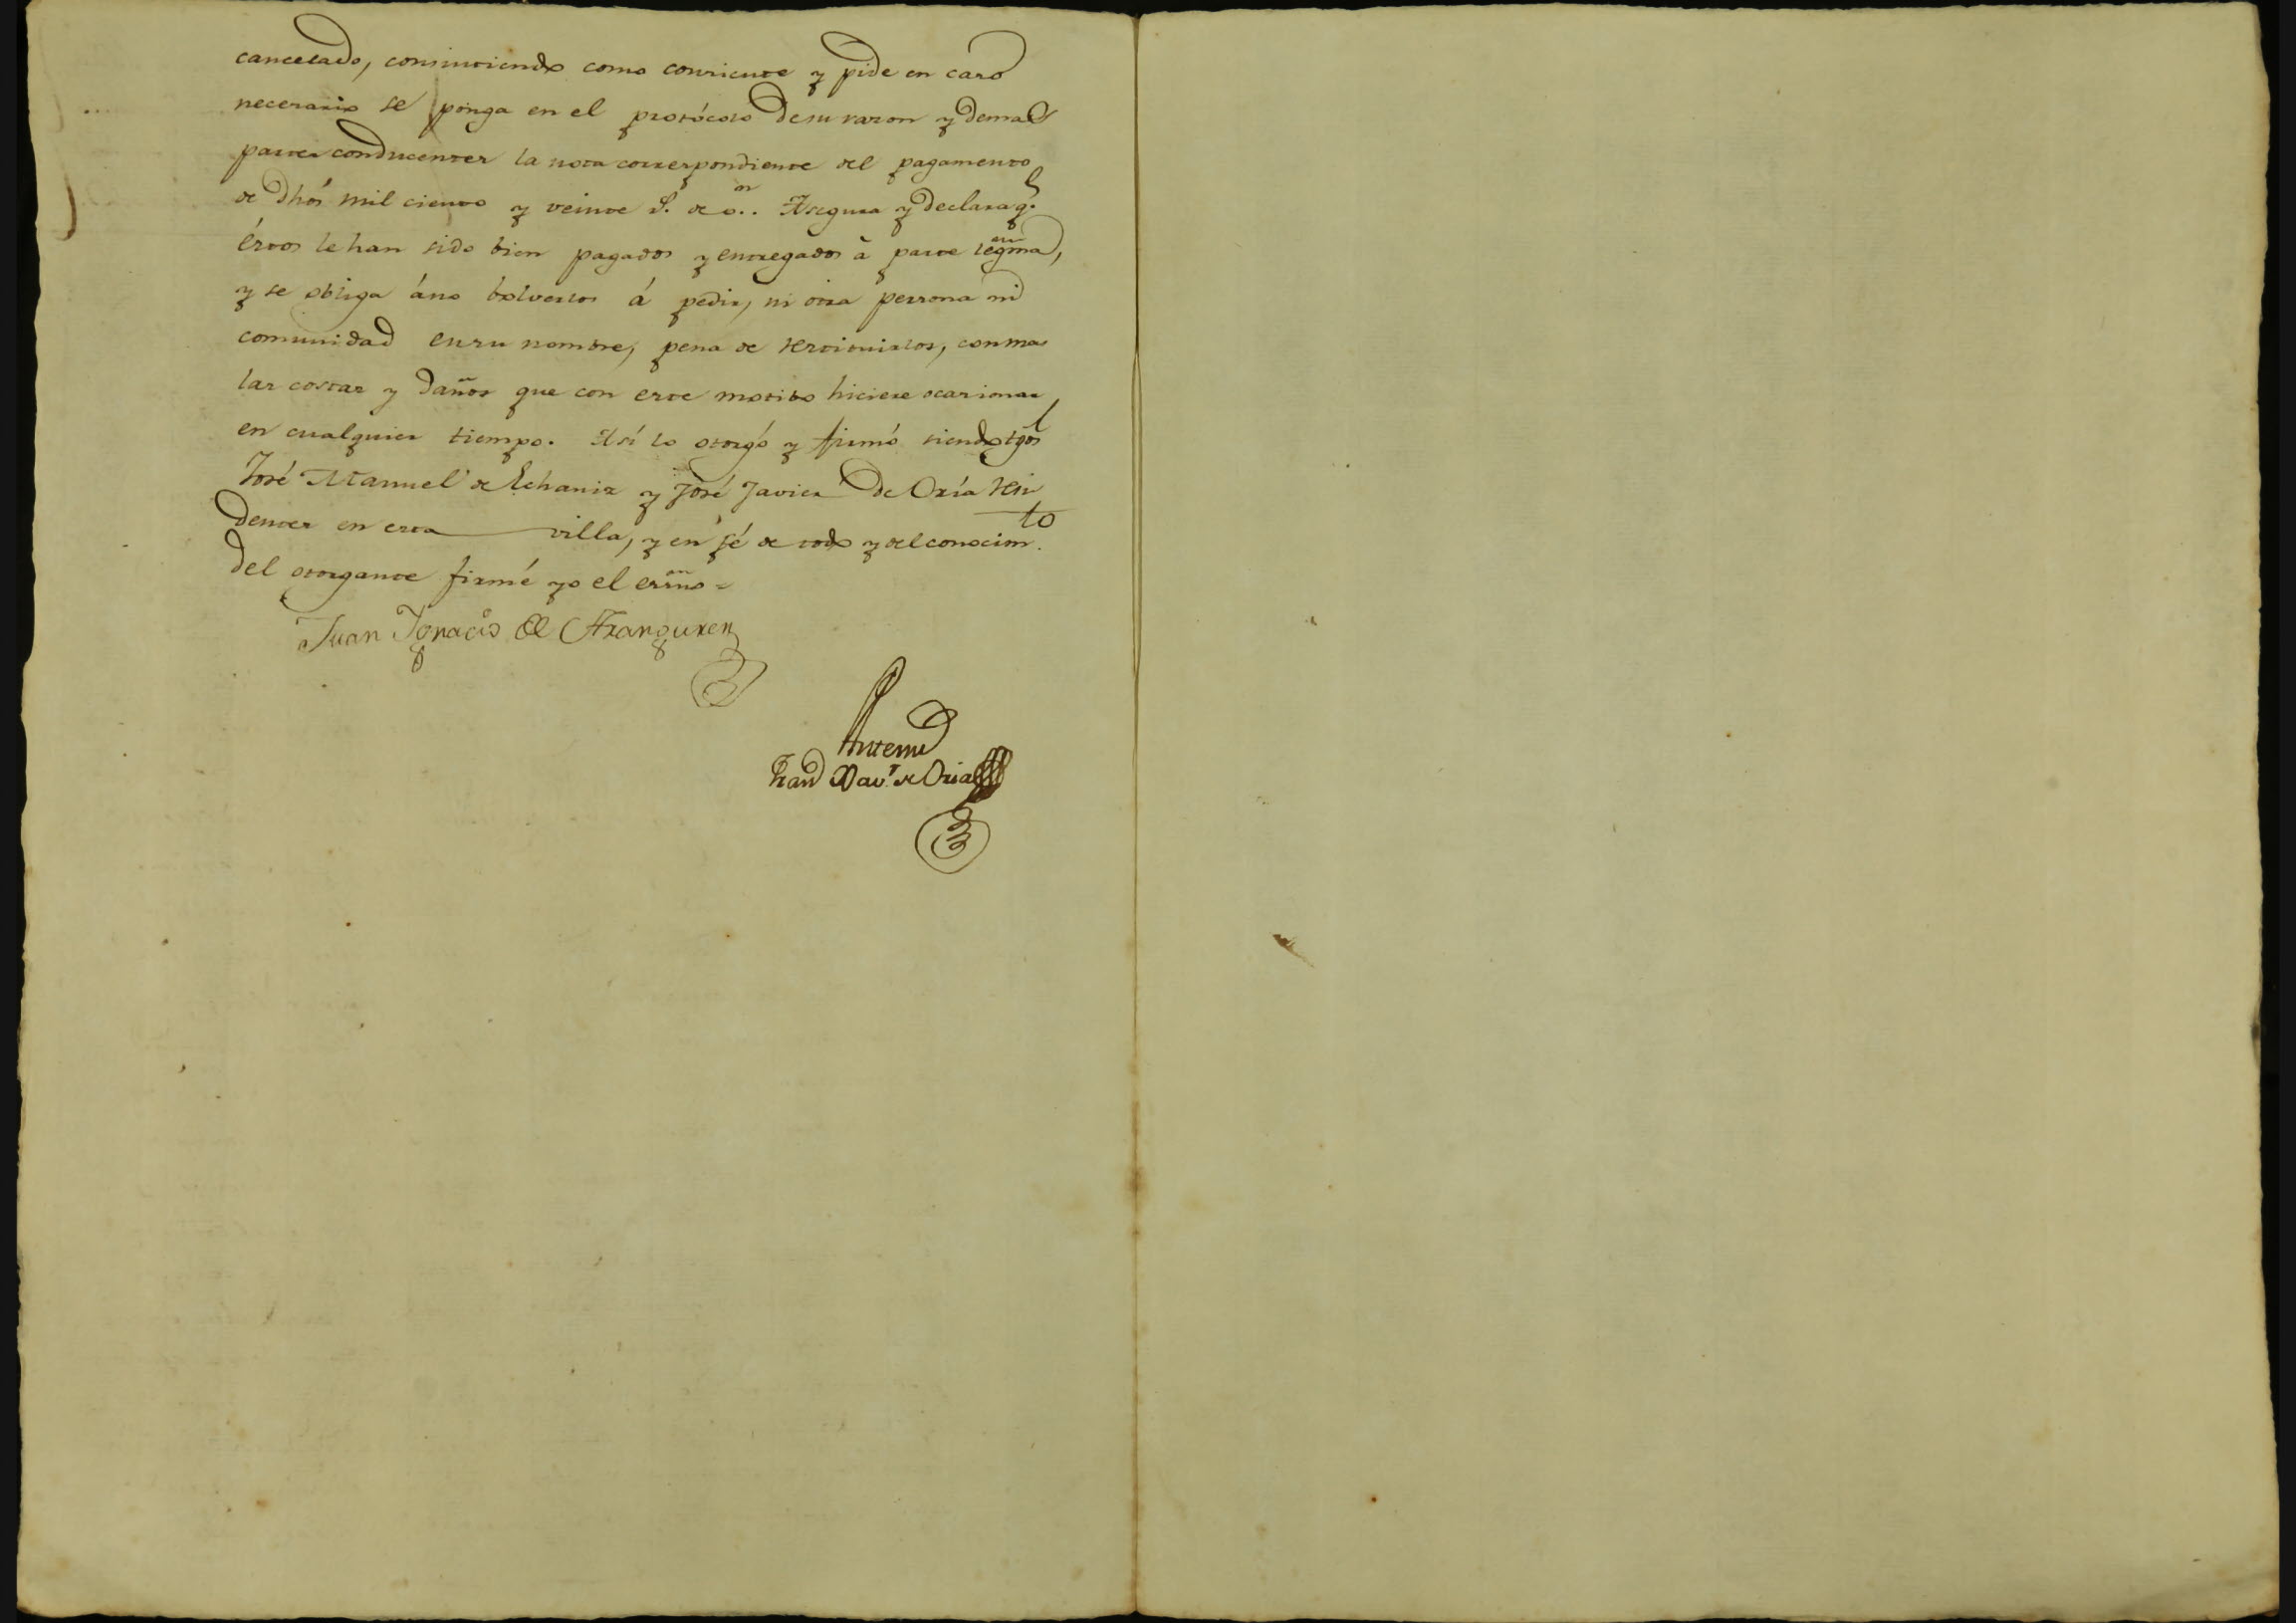 cancelado, consintiendo como consiente y pide en caso
necesario se ponga en el protócolo de su razon y demas
partes conducentes la nota correspondiente del pagamento
de dhós mil ciento y veinte d.s de v.on. Asegura y declara q.e
éstos le han sido bien pagados y entregados à parte legma,
y se obliga áno bolverlos á pedir, ni otra persona ni
comunidad en su nombre, pena de restituirlos, con mas
las costas y daños que con este motibo hiciere ocasionar
en cualquier tiempo. Así lo otorgó y firmó siendo tgos
José Manuel de Echaniz y José Javier de Oría resi
dentes en esta villa, y en fé de todo y del conocim.to
del otorgante firmé yo el essno =
Juan Ignacio de Aranguren
Antemi
Fran Xav.r de Oria